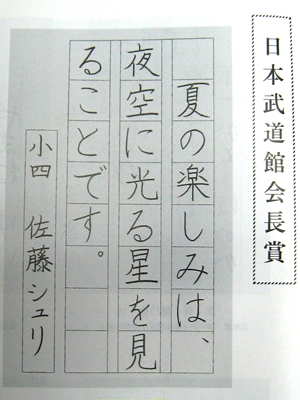 日本武道館会長賞
夏の楽しみは、
夜空に光る星を見
ることです。
小四 佐藤シュリ